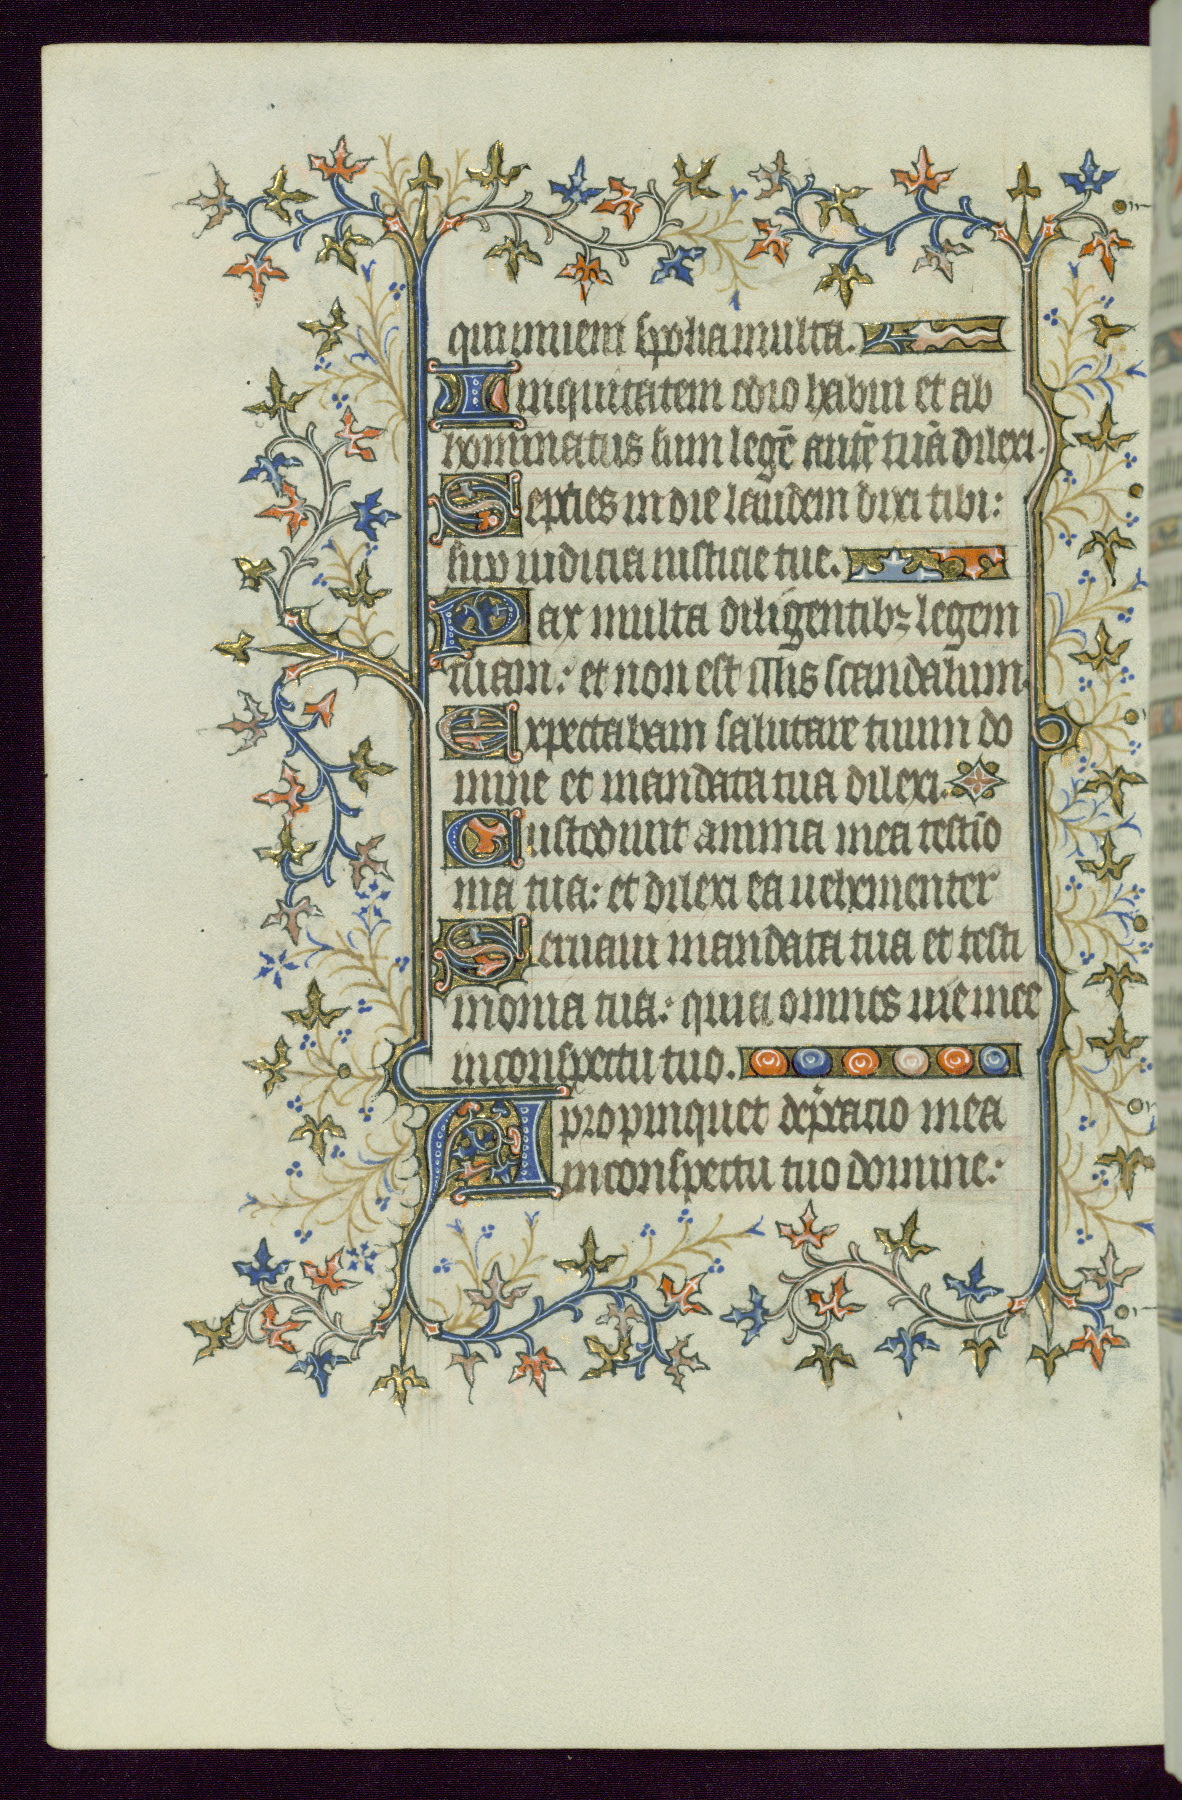 qui inuenit spolia multa.
Iniquitatem odio habui et ab
hominatus sum legē autē tuā dilexi.
Septies in die laudem dixi tibi:
sup iudicia iusticie tue.
Pax multa diligentibꝫ legem
tuam: et non est illis scandalum.
Expectabam salutare tuum do
mine et mandata tua dilexi.
Custodiuit anima mea testio
nia tua: et dilexi ea uehementer
Seruaui mandata tua et testi
monia tua: quia omnes uie mee
in conspectu tuo.
Apropinquet dep̄catio mea
in conspectu tuo domine: